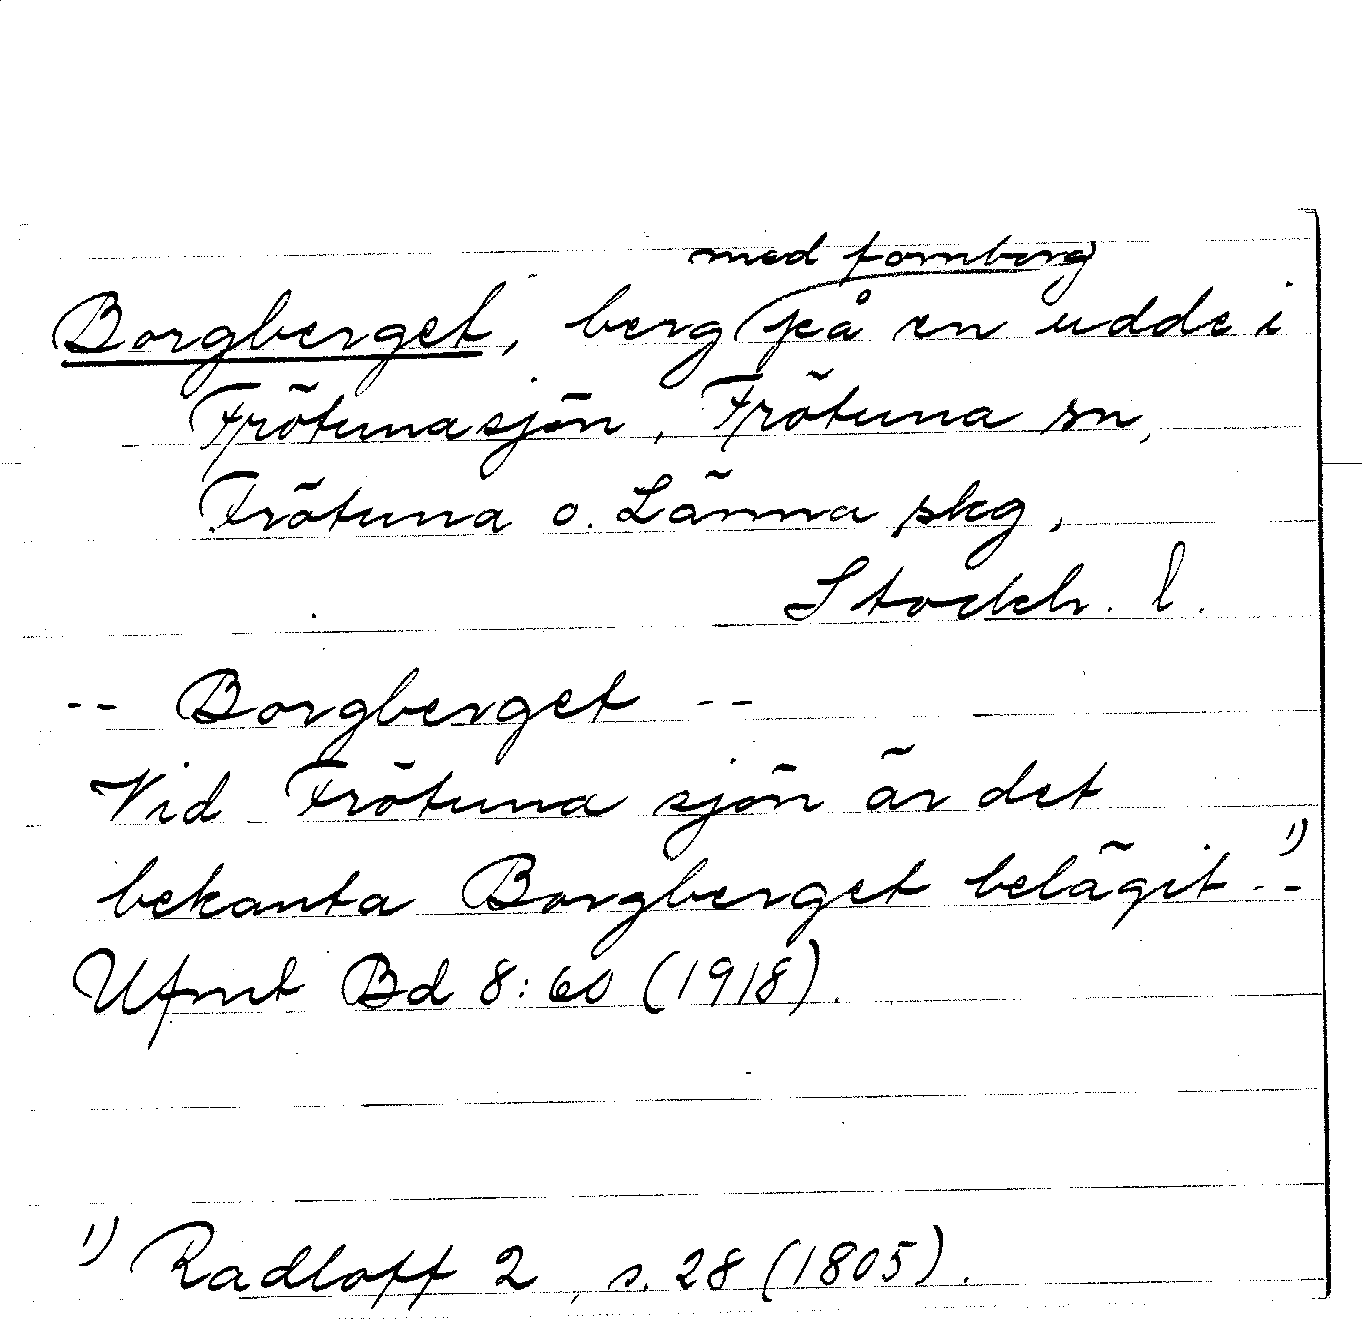 med fornborg
Borgberget, berg på en udde i
Frötunasjön, Frötuna sn,
Frötuna o. Länna skg,
Stockh. l.
-- Borgberget --
Vid Frötuna sjön är det
bekanta Borgberget belägit --¹⁾
Ufmt Bd 8:60 (1918).
¹⁾ Radloff 2, s. 28 (1805).